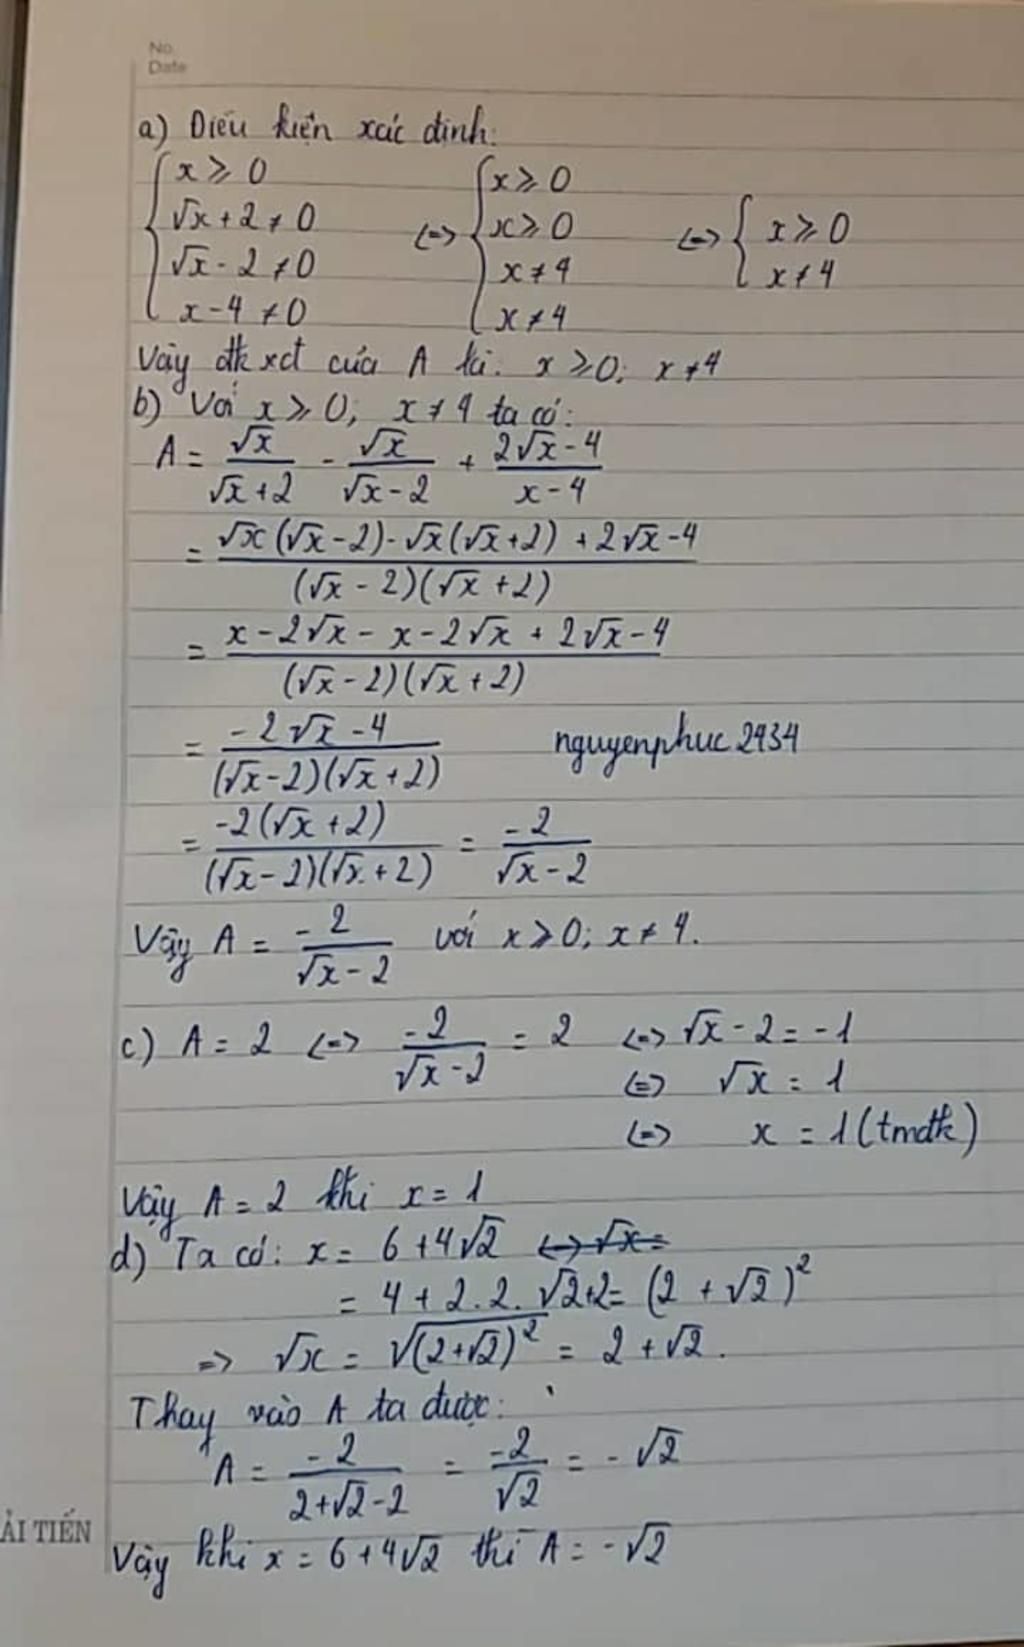 No.
Date
a) Điều kiện xác định:
{ x ⩾ 0
√x + 2 ≠ 0
√x - 2 ≠ 0
x - 4 ≠ 0
<=> { x ⩾ 0
x ⩾ 0
x ≠ 4
x ≠ 4
<=> { x ⩾ 0
x ≠ 4
Vậy đkxđ của A là: x ⩾ 0; x ≠ 4
b) Với x ⩾ 0; x ≠ 4 ta có:
A = √x/(√x + 2) - √x/(√x - 2) + (2√x - 4)/(x - 4)
= (√x(√x - 2) - √x(√x + 2) + 2√x - 4)/((√x - 2)(√x + 2))
= (x - 2√x - x - 2√x + 2√x - 4)/((√x - 2)(√x + 2))
= (-2√x - 4)/((√x - 2)(√x + 2)) nguyenphuc2434
= (-2(√x + 2))/((√x - 2)(√x + 2)) = -2/(√x - 2)
Vậy A = -2/(√x - 2) với x ⩾ 0; x ≠ 4.
c) A = 2 <=> -2/(√x - 2) = 2 <=> √x - 2 = -1
<=> √x = 1
<=> x = 1 (tmđk)
Vậy A = 2 khi x = 1
d) Ta có: x = 6 + 4√2 <=> √x =
= 4 + 2.2.√2 + 2 = (2 + √2)²
=> √x = √(2+√2)² = 2 + √2.
Thay vào A ta được:
A = -2/(2+√2-2) = -2/√2 = -√2
ẢI TIẾN
Vậy khi x = 6 + 4√2 thì A = -√2